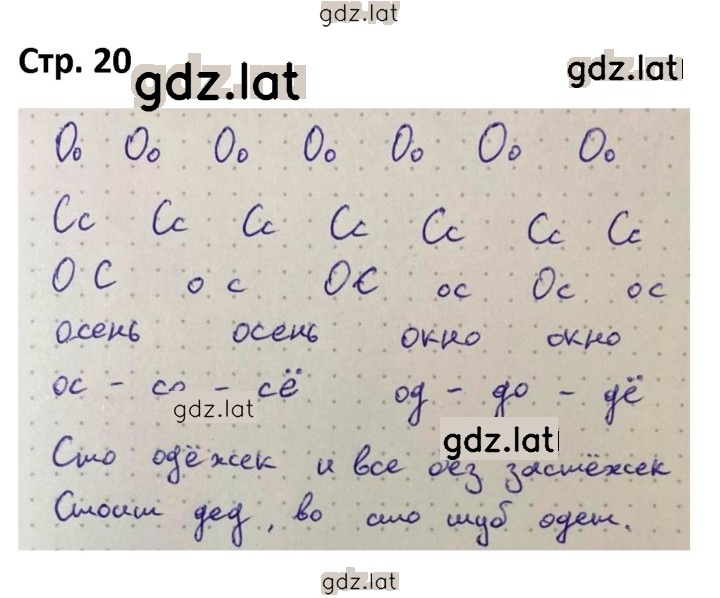 gdz.lat
Стр. 20
gdz.lat
gdz.lat
Оо Оо Оо Оо Оо Оо Оо
Сс Сс Сс Сс Сс Сс Сс
О С о с ОС ос Ос ос
осень осень окно окно
ос - со - сё од - до - дё
gdz.lat
gdz.lat
Сто одёжек и все без застёжек
Стоит дед, во сто шуб одет.
gdz.lat